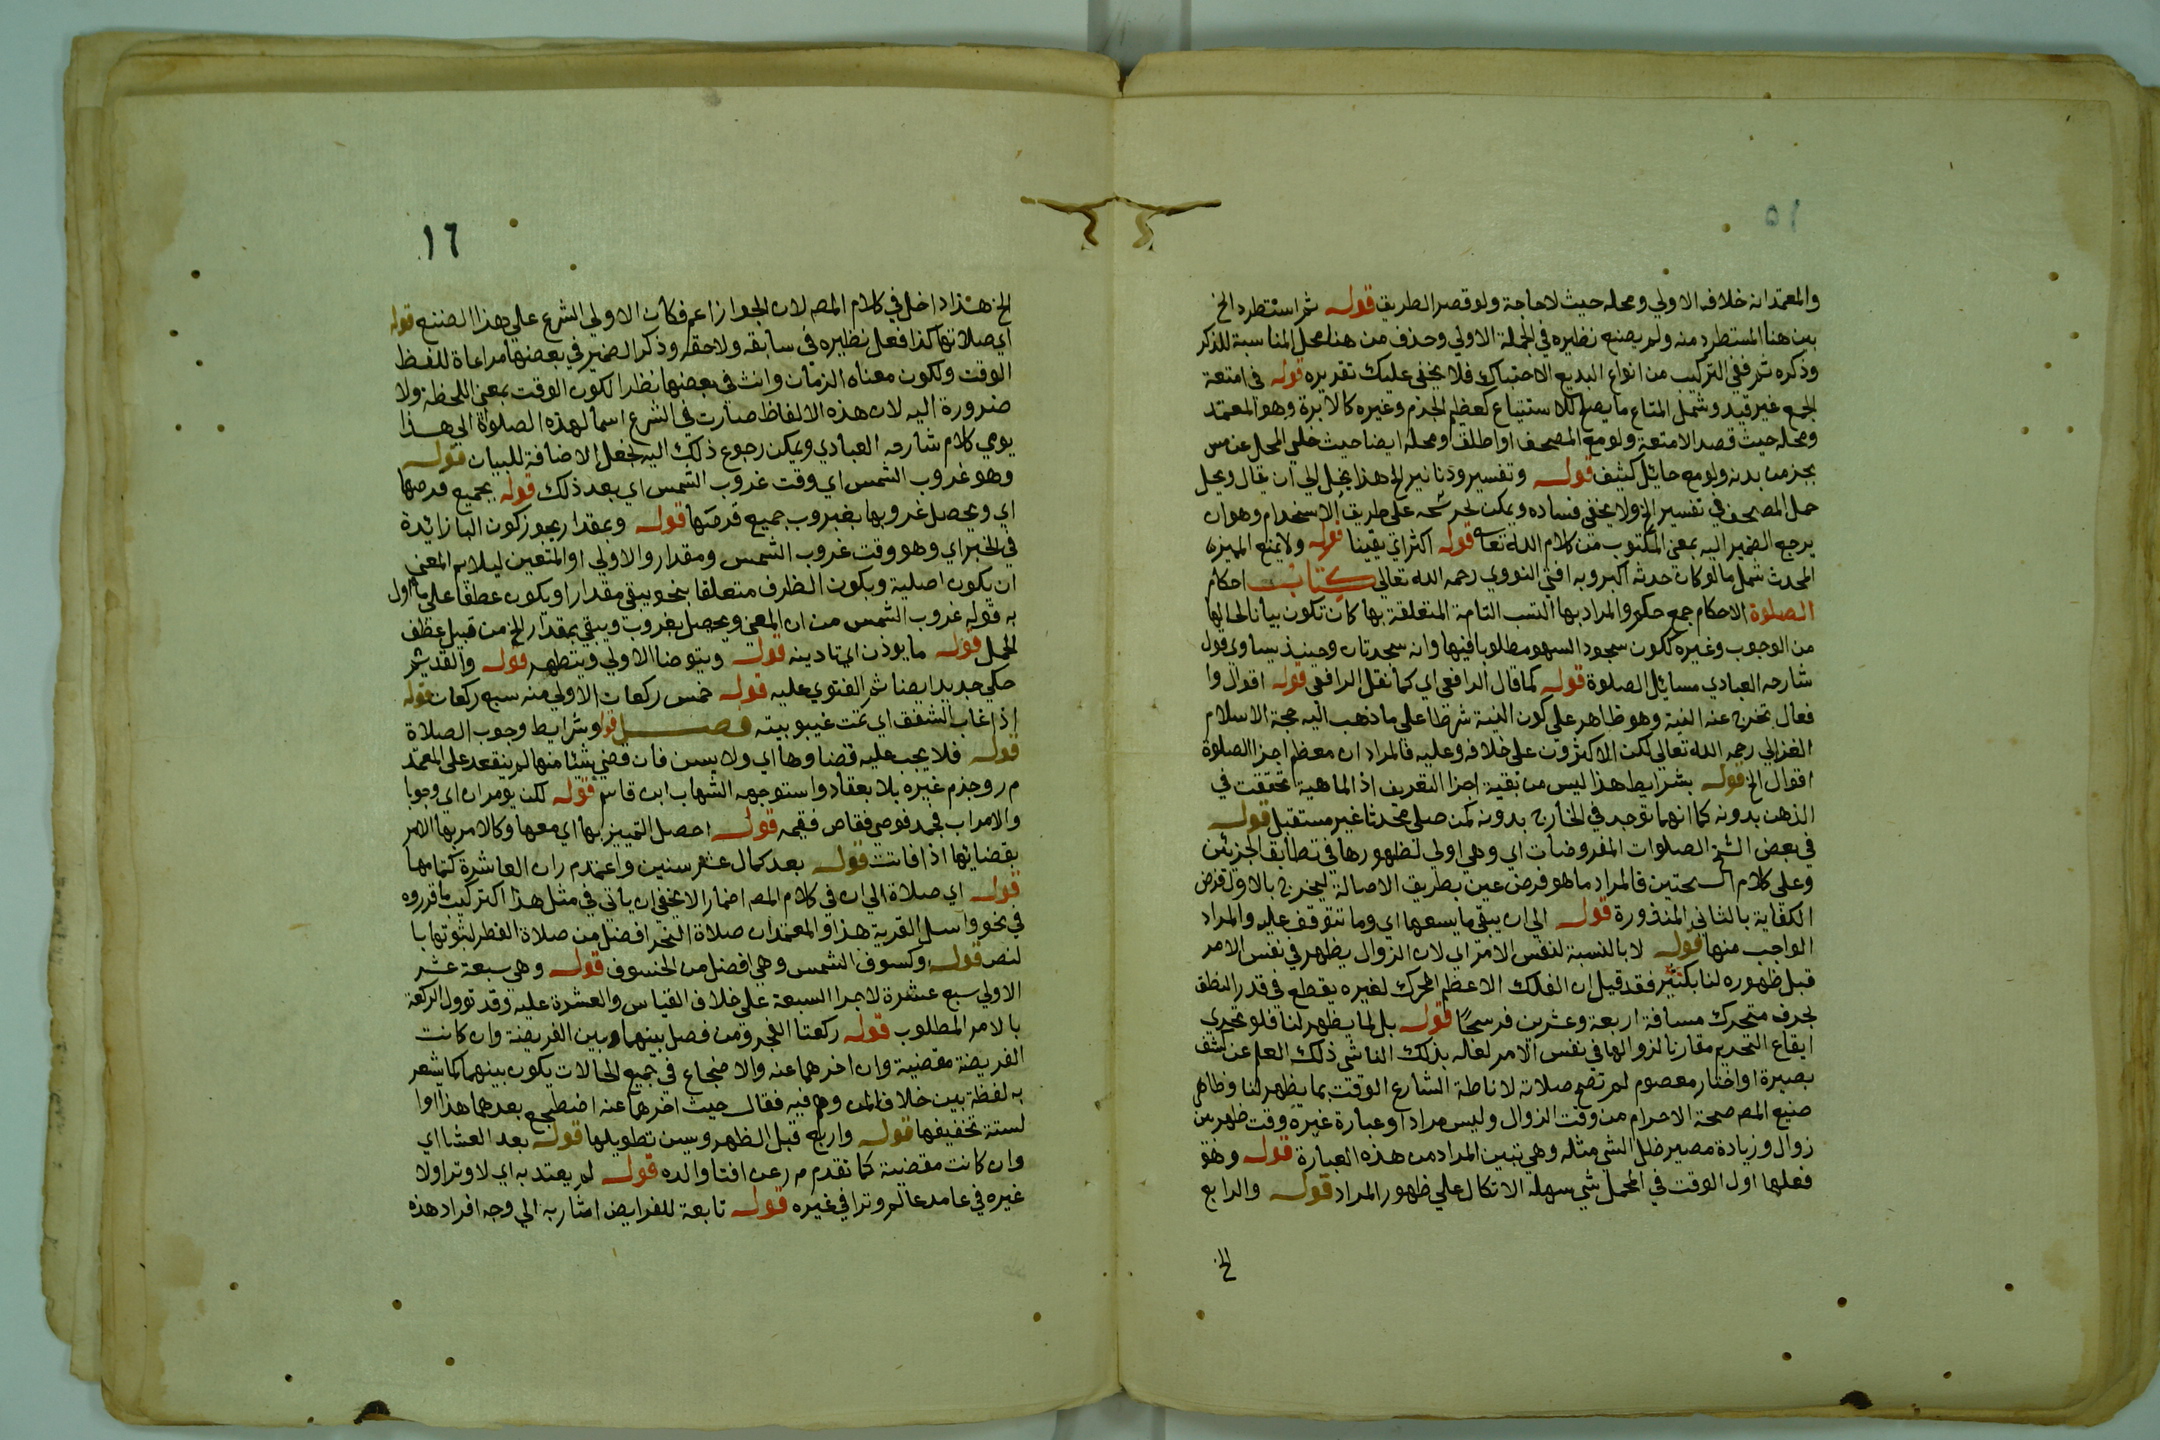 والمعتمد انه خلاف الاولي ومحله حيث لاحاجة ولو قصر الطريق قوله ثم استطرد الخ
بين هنا المستطرد منه ولم يصنع نظيره في الجملة الاولي وحذف من هنا محل المناسبة للذكر
وذكره ثم ففي التركيب من انواع البديع الاحتباك فلا يخفي عليك تقديره قوله في امتعة
الجمع غير قيد وشمل المتاع ما يصلح للاستتباع كعظيم الجذم وغيره كالابرة وهو المعتمد
ومحله حيث قصد الامتعة ولو مع المصحف او اطلق ومحله ايضا حيث خلي المحل عن مس
بجزء من بدنه ولو مع حائل كثيف قوله وتفسير ودنانير الخ هذا يخيل لي ان يقال ويحل
حمل المصحف في تفسير الخ ولا يخفي فساده ويمكن تخريجه علي طريق الاستخدام وهو ان
يرجع الضمير اليه بمعني المكتوب من كلام الله تعالي قوله اكثر اي يقينا قوله ولا يمنع المميز
المحدث شمل ما لو كان حدثه اكبر وبه افتي النووي رحمه الله تعالي كتاب احكام
الصلوة الاحكام جمع حكم والمراد بها النسب التامة المتعلقة بها كان تكون بيانا لحالها
من الوجوب وغيره ككون سجود السهو مطلوبا فيها وانه سجدتان وحينئذ يساوي قول
شارحه العبادي مسائل الصلوة قوله كما قال الرافعي اي كما نقل الرافعي قوله اقوال وا
فعال تخرج عنه النية وهو ظاهر علي كون النية شرطا علي ما ذهب اليه حجة الاسلام
الغزالي رحمه الله تعالي لكن الاكثرون علي خلافه وعليه فالمراد ان معظم اجزا الصلوة
اقوال الخ قوله بشرايط هذا ليس من بقية اجزا التعريف اذ الماهية تحققت في
الذهن بدونه كما انها توجد في الخارج بدونه كمن صلي محدثا غير مستقبل قوله
في بعض النسخ الصلوات المفروضات اي وهي اولي لظهورها في تطابق الجزئين
وعلي كلام النسختين فالمراد ما هو فرض عين بطريق الاصالة ليخرج بالاول فرض
الكفاية بالثاني المنذورة قوله الي ان يبقي ما يسعها اي وما تتوقف عليه والمراد
الواجب منها قوله لا بالنسبة لنفس الامر اي لان الزوال يظهر في نفس الامر
قبل ظهوره لنا بكثير فقد قيل ان الفلك الاعظم المحرك لغيره يقطع في قدر النطق
بحرف متحرك مسافة اربعة وعشرين فرسخا قوله بل لما يظهر لنا فلو تحري
ايقاع التحريم مقارنا لزوالها في نفس الامر لعله بذلك الناشي ذلك العلم عن كشف
بصيرة او اخبار معصوم لم تصح صلاته لاناطة الشارع الوقت بما يظهر لنا وظاهر
صنيع المصـ صحة الاحرام من وقت الزوال وليس مرادا وعبارة غيره وقت ظهر بين
زوال وزيادة مصير ظل الشي مثله وهي تبين المراد من هذه العبارة قوله وهو
فعلها اول الوقت في المحمل شي سهله الاتكال علي ظهور المراد قوله والرابع
الخ
١٦
الخ هذا داخل في كلام المصـ لان الجواز اعم فكان الاولي الشرع علي هذا الصنيع قوله
اي صلاتها كذا فعل نظيره في سابقه ولاحقه وذكر الضمير في بعضها مراعاة للفظ
الوقت ولكون معناه الزمان وانث في بعضها نظرا لكون الوقت بمعني اللحظة ولا
ضرورة اليه لان هذه الالفاظ صارت في الشرع اسما لهذه الصلوة الي هذا
يومي كلام شارحه العبادي ويمكن رجوع ذلك اليه بجعل الاضافة للبيان قوله
وهو غروب الشمس اي وقت غروب الشمس اي بعد ذلك قوله بجميع قرصها
اي ويحصل غروبها بغيروب جميع قرصها قوله وبمقدار يجوز كون البا زائدة
في الخبر اي وهو وقت غروب الشمس ومقدار والاولي او المتعين ليلايم المعني
ان يكون اصلية ويكون الظرف متعلقا بنحو يبقي مقدارا ويكون عطفا علي ما اول
به قوله غروب الشمس من ان المعني ويحصل بغروب ويبقي بمقدار الخ من قبيل عطف
الجمل قوله ما يوذن اي تادينه قوله ويتوضا الاولي ويتطهر قوله والقديم
حكي جديد ايضا ثم الفتوي عليه قوله خمس ركعات الاولي منه سبع ركعات قوله
اذا غاب الشفق اي تمت غيبوبيته فصل قوله وشرايط وجوب الصلاة
قوله فلا يجب عليه قضاوها اي ولا يسن فان قضي شئا منها لم ينعقد علي المعتمد
م ر وجزم غيره بلا بعقاد واستوجهه الشهاب ابن قاسم قوله لكن يومر ان اي وجوبا
والامر اب فجد فوصي فقاض فقيمه قوله احصل التمييز بها اي معها وكالامر بها الامر
بقضائها اذا فاتت قوله بعد كمال عشر سنين واعتمد م ر ان العاشرة كتمامها
قوله اي صلاة الي ان في كلام المصـ اضمارا لا يخفي ان ياتي في مثل هذا التركيب ما قرروه
في نحو واسل القرية هذا والمعتمد ان صلاة النحر افضل من صلاة الفطر لثبوتها با
لنص قوله وكسوف الشمس وهي افضل من الخسوف قوله وهي سبعة عشر
الاولي سبع عشرة لاجرا السبعة علي خلاف القياس والعشرة عليه وقد توول الركعة
بالامر المطلوب قوله ركعتا الفجر ومن فصل بينهما وبين الفريضة وان كانت
الفريضة مقضية وان اخرهما عنه والاضجاع في جميع الحالات يكون بينهما كما يشعر
به لفظة بين خلافا لمن وهم فيه فقال حيث اخرهما عنه اضطجع بعدهما هذا وا
لسنة تخفيفها قوله واربع قبل الظهر ويسن تطويلها قوله بعد العشا اي
وان كانت مقضية كما تقدم م ر عن افتا والده قوله لم يعتد به اي لا وترا ولا
غيره في عامد عالم وترا في غيره قوله تابعة للفرايض اشار به الي وجه افراد هذه